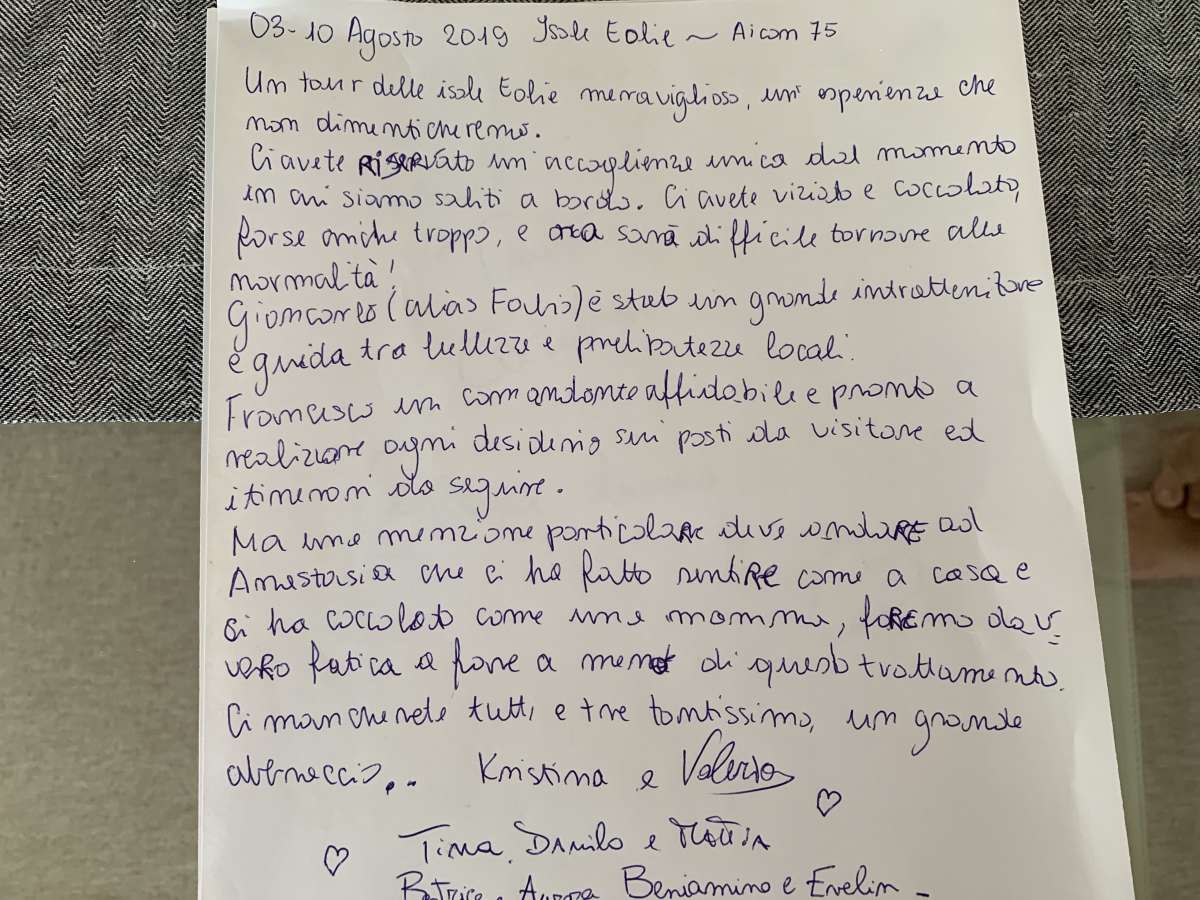 03-10 Agosto 2019 Isole Eolie ~ Aicon 75
Un tour delle isole Eolie meraviglioso, un' esperienza che
non dimenticheremo.
Ci avete RISERVATO un'accoglienza unica dal momento
in cui siamo saliti a bordo. Ci avete viziato e coccolato,
forse anche troppo, e ora sarà difficile tornare alla
normalità!
Giancarlo (alias Fabio) è stato un grande intrattenitore
e guida tra bellezze e prelibatezze locali.
Francesco un comandante affidabile e pronto a
realizzare ogni desiderio sui posti da visitare ed
itinerari da seguire.
Ma una menzione particolare deve andare ad
Anastasia che ci ha fatto sentire come a casa e
ci ha coccolato come una mamma, faremo dav=
vero fatica a fare a meno di questo trattamento.
Ci mancherete tutti e tre tantissimo, un grande
abbraccio,.. Kristina e Valerio
Tina, Danilo e Mattia
Beatrice, Aurora Beniamino e Evelin -